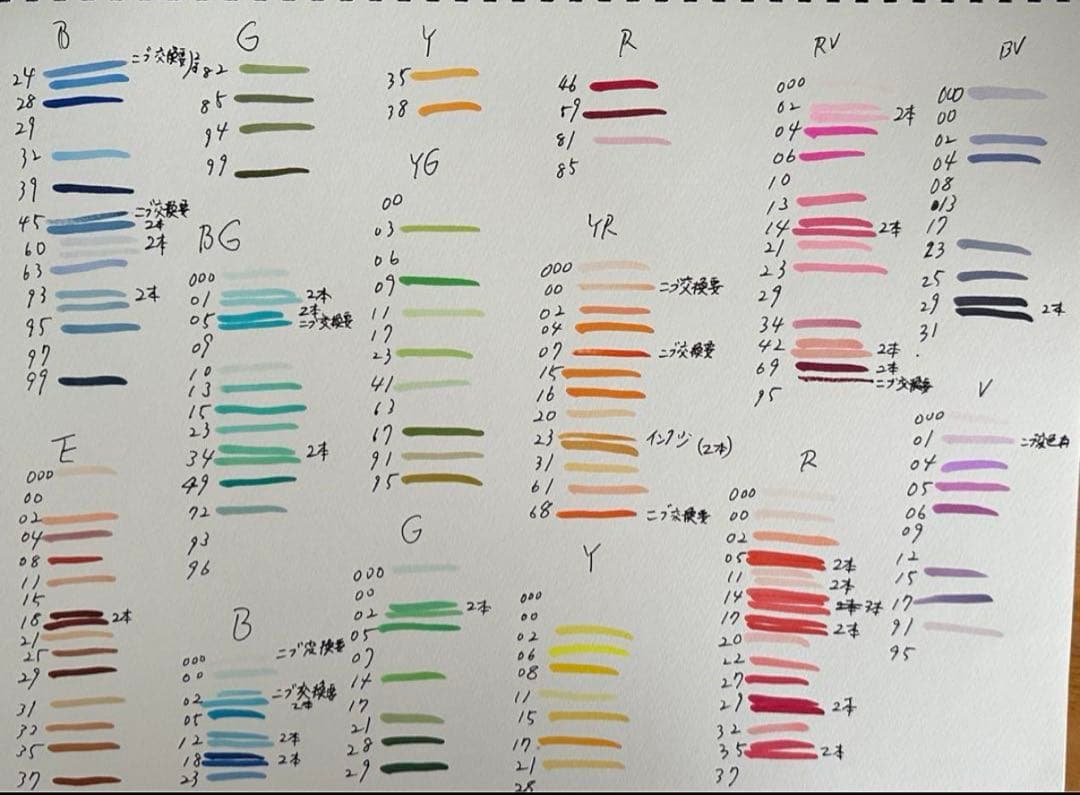 B
24 ニブ交換要
28
29
32
39
45 ニブ交換要
2本
60 2本
63
93 2本
95
97
99
E
000
00
02
04
08
11
15
18 2本
21
25
29
31
33
35
37
G
82
85
94
99
BG
000
01 2本
05 2本
ニブ交換要
09
10
13
15
23
34 2本
49
72
93
96
B
000 ニブ交換要
00
02 ニブ交換要
2本
05
12 2本
18 2本
23
Y
35
38
YG
00
03
06
09
11
17
23
41
63
67
91
95
G
000
00
02 2本
05
07
14
17
21
28
29
R
46
59
81
85
YR
000
00 ニブ交換要
02
04
07 ニブ交換要
15
16
20
23 (2本)
31
61
68 ニブ交換要
Y
000
00
02
06
08
11
15
17
21
28
RV
000
02 2本
04
06
10
13
14 2本
21
23
29
34
42 2本
69 2本
ニブ交換要
95
R
000
00
02
05 2本
11 2本
14 3本
17 2本
20
22
27
29 2本
32
35 2本
37
BV
000
00
02
04
08
13
17
23
25
29 2本
31
V
000
01
04
05
06
09
12
15
17
91
95